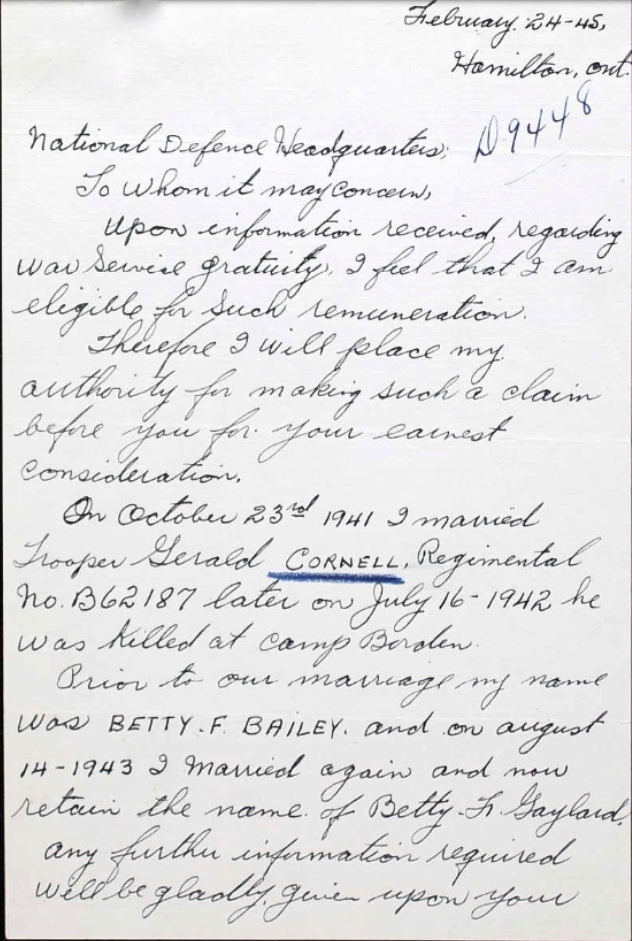 February. 24-45,
Hamilton, ont.
D9448
National Defence Headquarters;
To Whom it may Concern,
Upon information received, regarding
War Service gratuity, I feel that I am
eligible for such remuneration.
Therefore I will place my
authority for making such a claim
before you for your earnest
consideration.
On October 23rd 1941 I married
Trooper Gerald CORNELL, Regimental
No. B62187 later on July 16-1942 he
was killed at camp Borden.
Prior to our marriage my name
was BETTY. F. BAILEY. and on august
14-1943 I Married again and now
retain the name of Betty. F. Gaylard.
any further information required
will be gladly given upon your